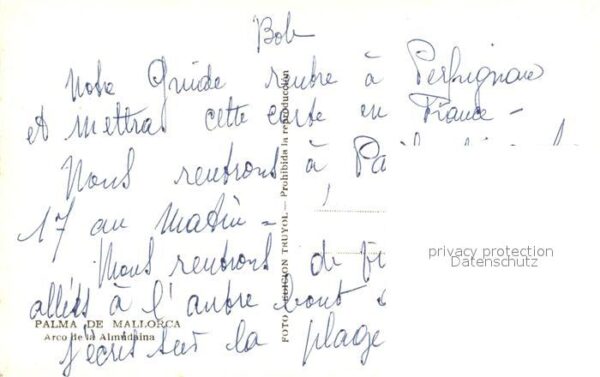 Bob
Notre Guide rentre à Perpignan
et mettra cette carte en France -
Nous rentrons à Pa
17 au Matin -
Nous rentrons de
allées à l'autre bout
j'écris sur la plage
PALMA DE MALLORCA
Arco de la Almudaina
FOTO EDICION TRUYOL - Prohibida la reproducción
privacy protection
Datenschutz